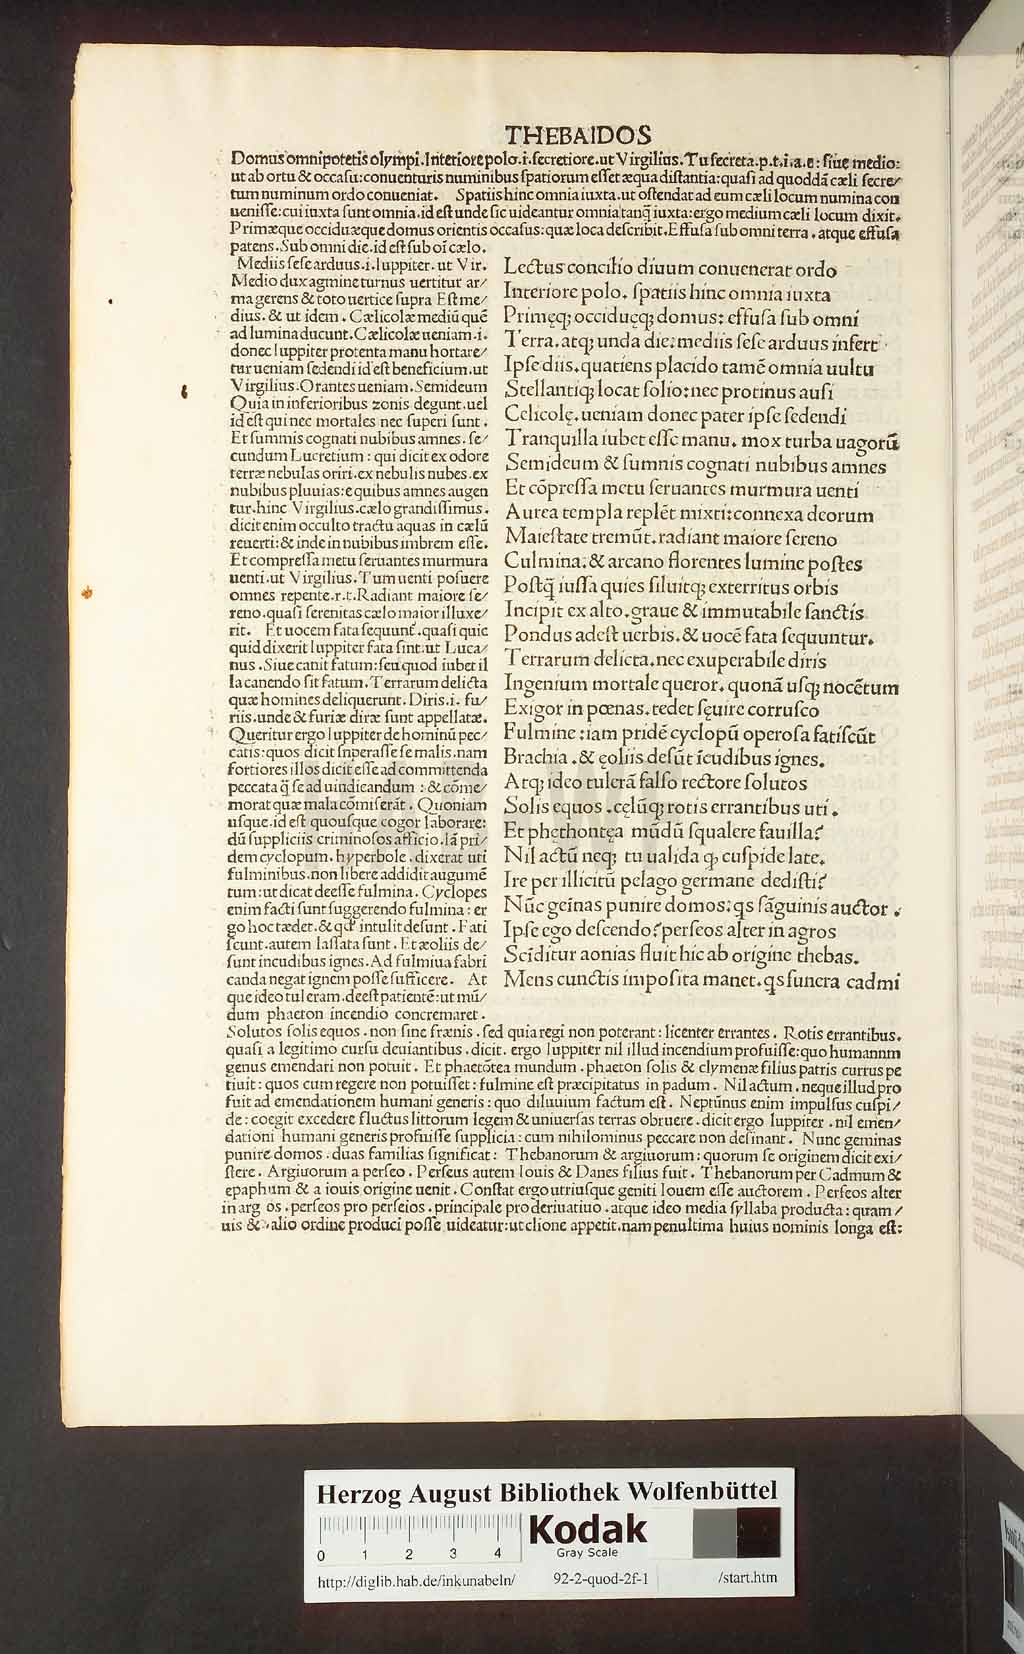 THEBAIDOS
Domus omnipotẽtis olympi. Interiore polo .i. secretiore. ut Virgilius. Tu secreta.p.t.i.a.e: siue medio:
ut ab ortu & occasu: conuenturis numinibus spatiorum esset æqua distantia: quasi ad quoddã cæli secre/
tum numinum ordo conueniat. Spatiis hinc omnia iuxta. ut ostendat ad eum cæli locum numina con
uenisse: cui iuxta sunt omnia. id est unde sic uideantur omnia tanq̃ iuxta: ergo medium cæli locum dixit.
Primæque occiduæque domus orientis occasus: quæ loca describit. Effusa sub omni terra. atque effusa
patens. Sub omni die. id est sub oĩ cælo.
Mediis sese arduus .i. Iuppiter. ut Vir.
Medio dux agmine turnus uertitur ar/
ma gerens & toto uertice supra Est me/
dius. & ut idem. Cælicolæ mediũ quẽ
ad lumina ducunt. Cælicolæ ueniam .i.
donec Iuppiter protenta manu hortare/
tur ueniam sedendi id est beneficium. ut
Virgilius. Orantes ueniam. Semideum
Quia in inferioribus zonis degunt. uel
id est qui nec mortales nec superi sunt.
Et summis cognati nubibus amnes. se/
cundum Lucretium: qui dicit ex odore
terræ nebulas oriri. ex nebulis nubes. ex
nubibus pluuias: e quibus amnes augen
tur. hinc Virgilius. cælo grandissimus.
dicit enim occulto tractu aquas in cælũ
reuerti: & inde in nubibus imbrem esse.
Et compressa metu seruantes murmura
uenti. ut Virgilius. Tum uenti posuere
omnes repente .r.t. Radiant maiore se/
reno. quasi serenitas cælo maior illuxe/
rit. Et uocem fata sequunt̃. quasi quic
quid dixerit Iuppiter fata sint. ut Luca/
nus. Siue canit fatum: seu quod iubet il
la canendo fit fatum. Terrarum delicta
quæ homines deliquerunt. Diris .i. fu/
riis. unde & furiæ diræ sunt appellatæ.
Queritur ergo Iuppiter de hominũ pec/
catis: quos dicit superasse se malis. nam
fortiores illos dicit esse ad committenda
peccata q̃ se ad uindicandum: & cõme/
morat quæ mala cõmiserãt. Quoniam
usque. id est quousque cogor laborare:
dũ suppliciis criminosos afficio. Iã pri/
dem cyclopum. hyperbole. dixerat uti
fulminibus. non libere addidit augumẽ
tum: ut dicat deesse fulmina. Cyclopes
enim facti sunt suggerendo fulmina: er
go hoc tædet. & qđ intulit desunt. Fati
scunt. autem lassata sunt. Et æoliis de/
sunt incudibus ignes. Ad fulmiua fabri
canda negat ignem posse sufficere. At
que ideo tuleram. deest patientẽ: ut mũ/
dum phaeton incendio concremaret.
Lectus concilio diuum conuenerat ordo
Interiore polo. spatiis hinc omnia iuxta
Primęq; occiduęq; domus: effusa sub omni
Terra. atq; unda die: mediis sese arduus infert
Ipse diis. quatiens placido tamẽ omnia uultu
Stellantiq; locat solio: nec protinus ausi
Celicolę. ueniam donec pater ipse sedendi
Tranquilla iubet esse manu. mox turba uagorũ
Semideum & sumnis cognati nubibus amnes
Et cõpressa metu seruantes murmura uenti
Aurea templa replẽt mixti: connexa deorum
Maiestate tremũt. radiant maiore sereno
Culmina: & arcano florentes lumine postes
Postq̃ iussa quies siluitq; exterritus orbis
Incipit ex alto. graue & immutabile sanctis
Pondus adest uerbis. & uocẽ fata sequuntur.
Terrarum delicta. nec exuperabile diris
Ingenium mortale queror. quonã usq; nocẽtum
Exigor in pœnas. tedet sęuire corrusco
Fulmine: iam pridẽ cyclopũ operosa fatiscũt
Brachia. & ęoliis desũt ĩcudibus ignes.
Atq; ideo tulerã falso rectore solutos
Solis equos. cęlũq; rotis errantibus uti.
Et phęthontęa mũdũ squalere fauilla?
Nil actũ neq; tu ualida q; cuspide late.
Ire per illicitũ pelago germane dedisti?
Nũc geĩnas punire domos: qs sãguinis auctor.
Ipse ego descendo? perseos alter in agros
Scĩditur aonias fluit hic ab origine thebas.
Mens cunctis imposita manet. qs funera cadmi
Solutos solis equos. non sine frænis. sed quia regi non poterant: licenter errantes. Rotis errantibus.
quasi a legitimo cursu deuiantibus. dicit. ergo Iuppiter nil illud incendium profuisse: quo humannm
genus emendari non potuit. Et phaetõtea mundum. phaeton solis & clymenæ filius patris currus pe
tiuit: quos cum regere non potuisset: fulmine est præcipitatus in padum. Nil actum. neque illud pro
fuit ad emendationem humani generis: quo diluuium factum est. Neptũnus enim impulsus cuspi/
de: coegit excedere fluctus littorum legem & uniuersas terras obruere. dicit ergo Iuppiter. nil emen/
dationi humani generis profuisse supplicia: cum nihilominus peccare non desinant. Nunc geminas
punire domos. duas familias significat: Thebanorum & argiuorum: quorum se originem dicit exi/
stere. Argiuorum a perseo. Perseus autem Iouis & Danes filius fuit. Thebanorum per Cadmum &
epaphum & a iouis origine uenit. Constat ergo utriusque geniti Iouem esse auctorem. Perseos alter
in arg os. perseos pro perseios. principale pro deriuatiuo. atque ideo media syllaba producta: quam/
uis & alio ordine produci posse uideatur: ut clione appetit. nam penultima huius nominis longa est:
HAB WF
Herzog August Bibliothek Wolfenbüttel
0 1 2 3 4
Kodak
Gray Scale
http://diglib.hab.de/inkunabeln/ 92-2-quod-2f-1 /start.htm